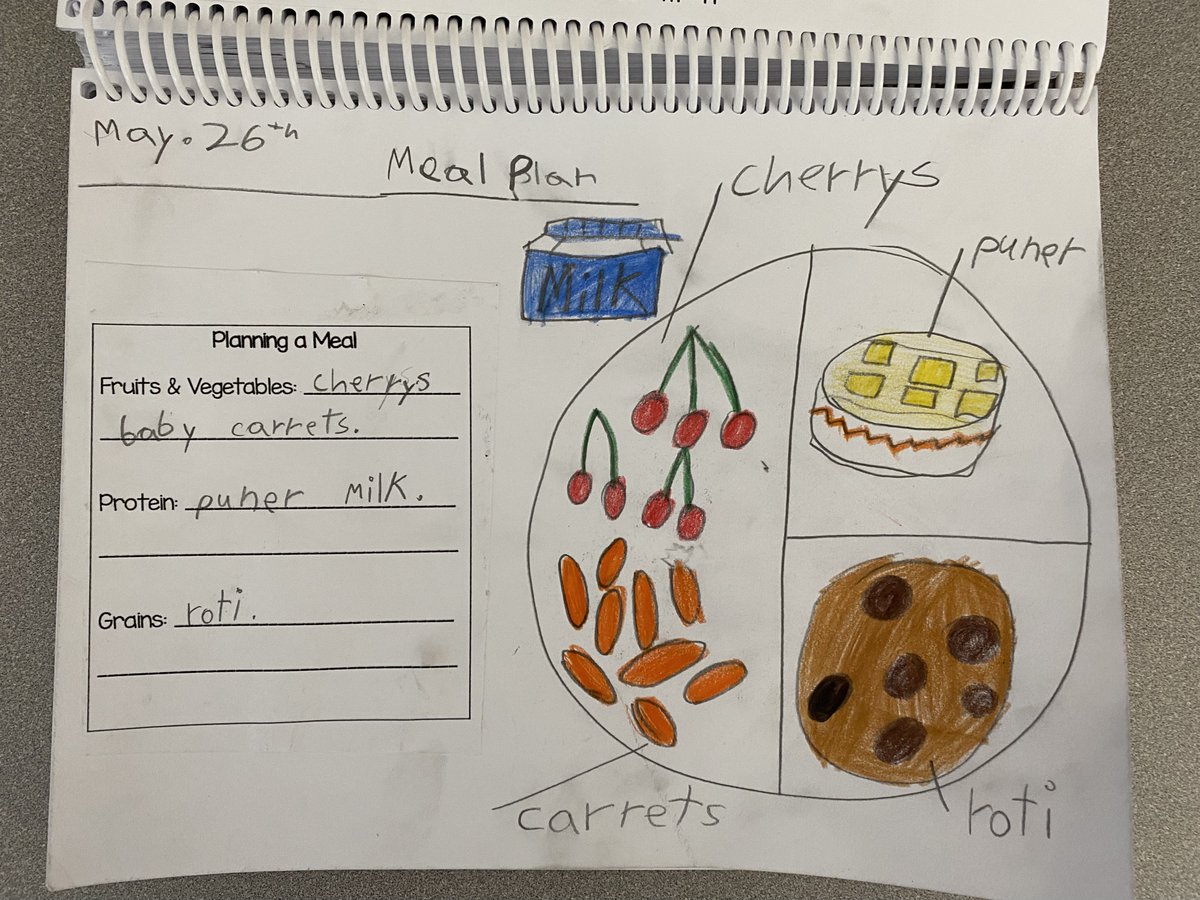 May. 26th
Meal Plan
cherrys
puner
Milk
Planning a Meal
Fruits & Vegetables: cherrys
baby carrets.
Protein: puner milk.
Grains: roti.
carrets
roti